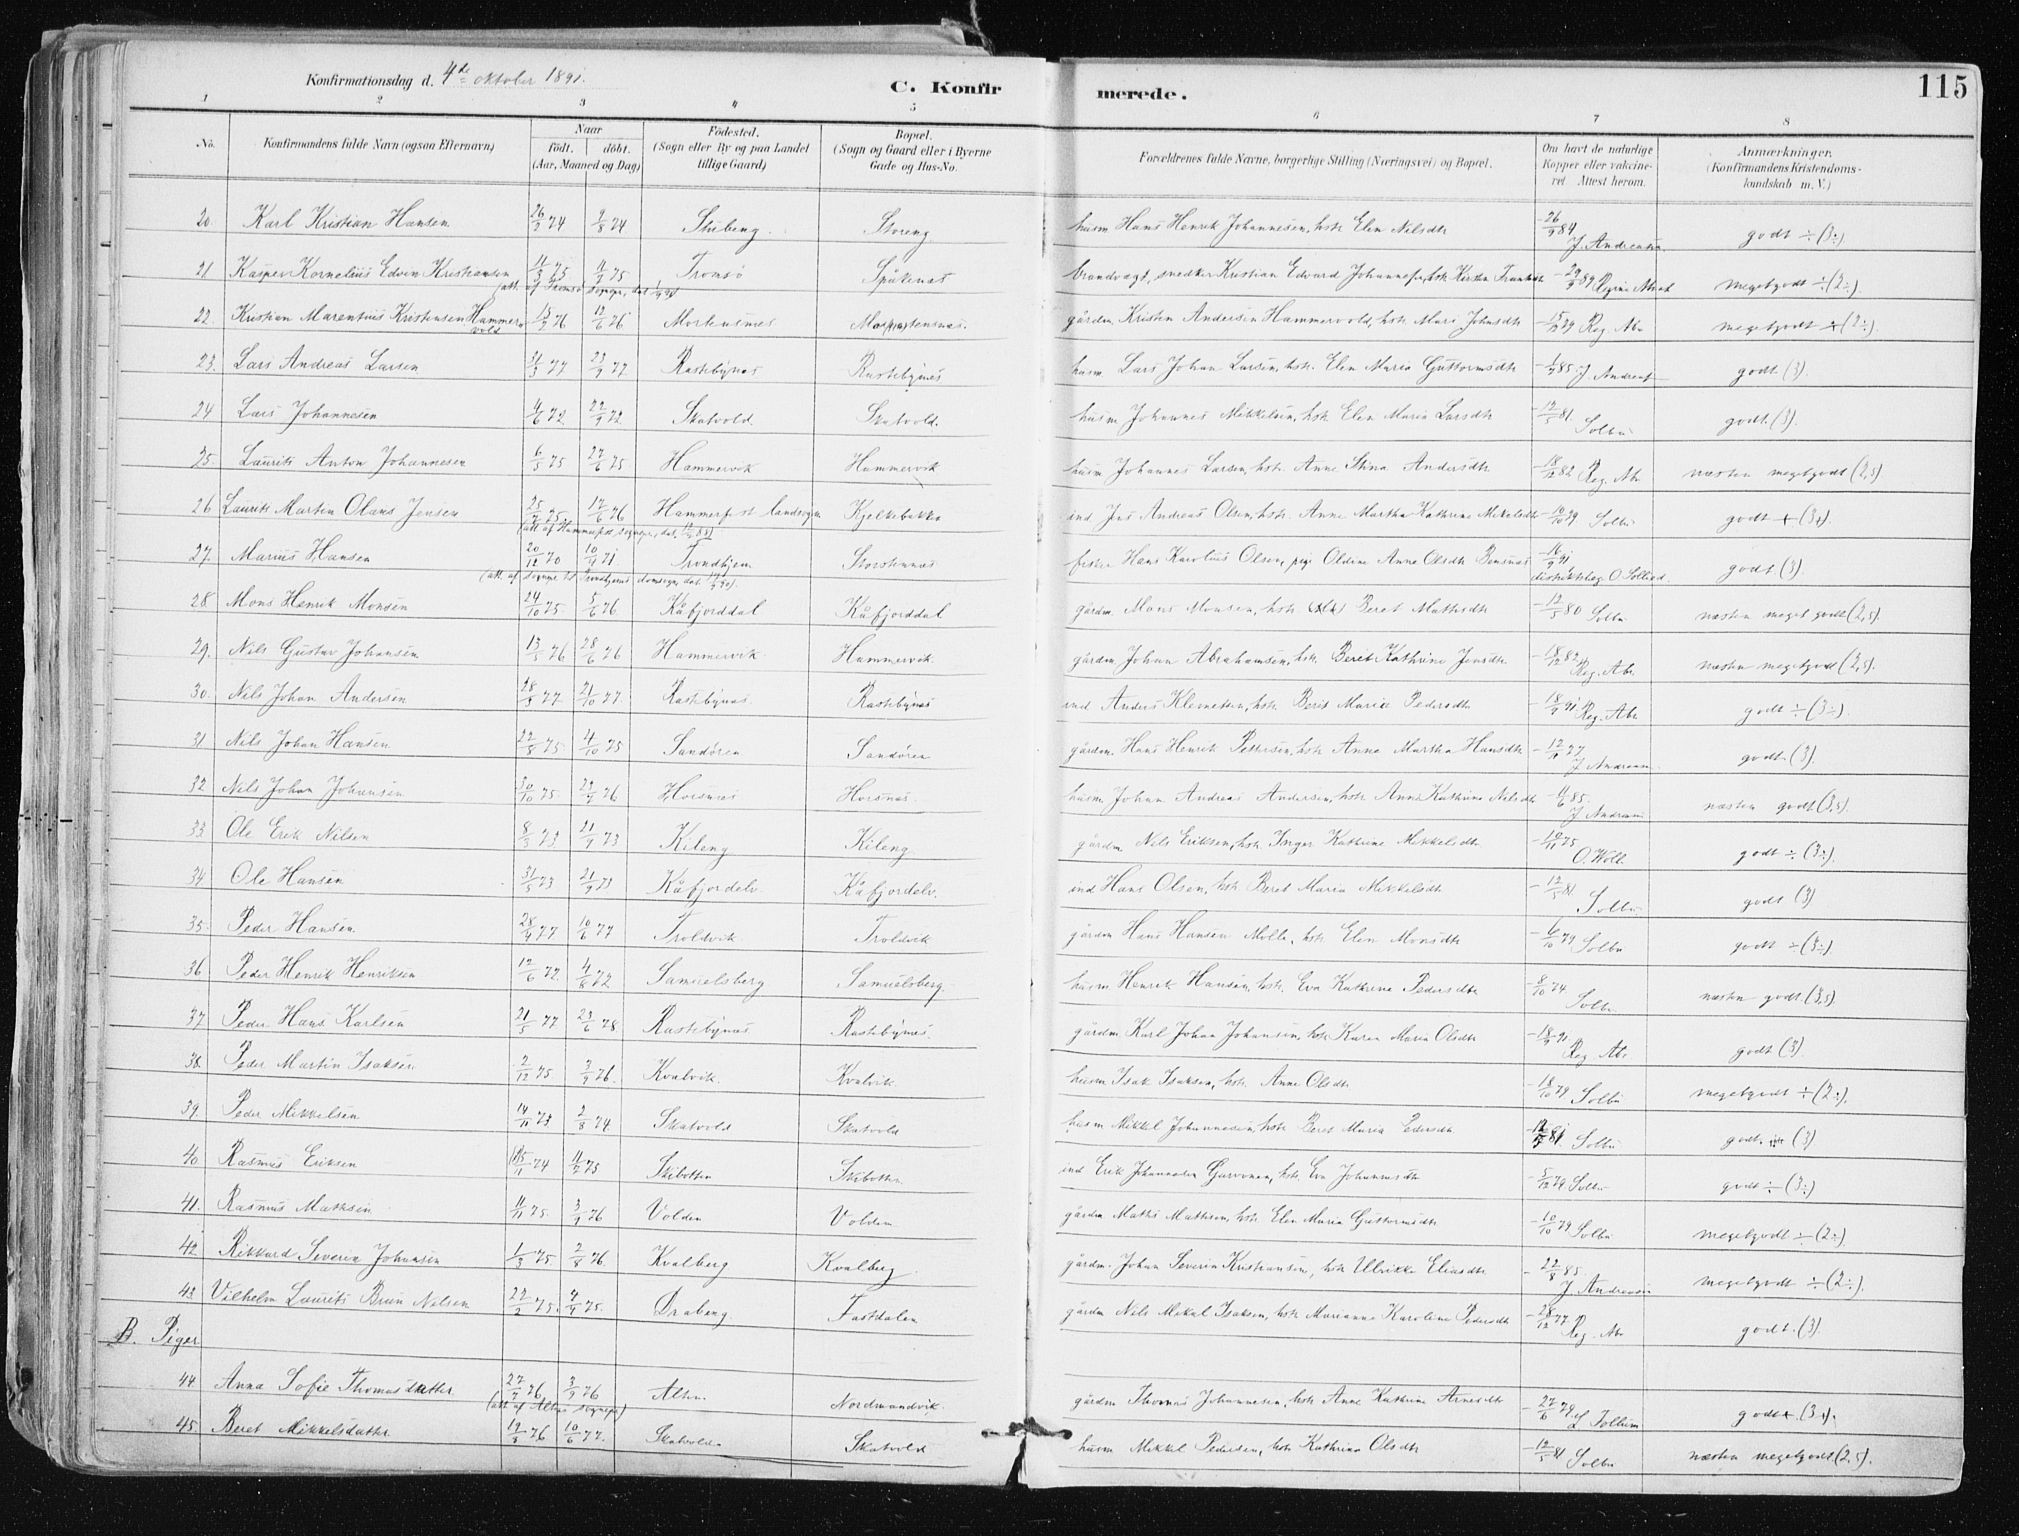 Konfirmationsdag d. 4de oktober 1891.
C. Konfirmerede.
115
1 2 3 4 5 6 7 8
No. Konfirmandens fulde Navn (ogsaa Efternavn) Naar Født. døbt. (Aar, Maaned og Dag) Fødested. (Sogn eller By og paa Landet tillige Gaard) Bopæl. (Sogn og Gaard eller i Byerne Gade og Hus-No. Forældrenes fulde Navne, borgerlige Stilling (Næringsvei) og Bopæl. Om havt de naturlige Kopper eller vakcineret Attest herom. Anmærkninger. (Konfirmandens Kristendomskundskab m. V.)
20. Karl Kristian Hansen 26/2 74 9/8 74 Storeng husm Hans Henrik Johannesen, hstr Elen Nilsdtr -26/9 84 J. Andreasen godt ÷ (3÷)
21 Kasper Kornelius Edvin Kristiansen 11/3 75 Tromsø Spåkenes brandvagt, snedker Kristian Edvard Johannesen, hstr megetgodt ÷(2÷).
22. Kristian Marentius Kristensen Hammervold 13/2 76 12/6 76 Mortensnes Mortensnes. gårdm. Kristen Andersen Hammervold, hstr. Mari Johnsdtr Reg. Abr megetgodt ÷ (2÷).
23. Lars Andreas Larsen 31/3 77 23/9 77 Rastebynes Rastebynes husm Lars Johan Larsen, hstr. Elen Maria Guttormsdtr J. Andreas godt (3).
24 Lars Johannesen 4/6 72 22/9 72 Skatvold Skatvold. husm Johannes Mikkelsen, hstr Elen Maria Larsdtr -12/5 81 Solbu godt. (3).
25. Laurits Anton Johannesen 6/5 75 27/6 75 Hammervik Hammervik husm Johannes Larsen, hstr. Anne Stina Andersdtr -18/12 82 Reg. Abr næsten megetgodt (2,5)
26 Laurits Martin Olaus Jensen 25/2 75 17/6 76 Hammerfest landsogn Kjelkebakken ind Jens Andreas Olsen, hstr. Anne Martha Kathrine Mikelsdtr -10/10 79 Solbu godt + (3+)
27. Marius Hansen 20/12 70 10/4 71 Trondhjem Storstennes fisker Hans Karolius Olsen, pige Oldine Anne Olsdtr -14/9 91 distriktslæg. godt (3)
28 Mons Henrik Monsen 24/10 75. 5/6 76. Kåfjorddal Kåfjorddal gårdm. Mons Monsen, hstr Beret Mathisdtr -12/5 80 Solbu næsten meget godt (2,5).
29. Nils Gustav Johansen 13/5 76 28/6 76 Hammervik Hammervik. gårdm Johan Abrahamsen, hstr. Beret Kathrine Jensdtr -18/12 82 Reg. Abr næsten megetgodt (2,5).
30. Nils Johan Andersen 28/8 77 21/10 77. Rastebynes Rastebynes ind Anders Klemetsen, hstr. Berit Maria Pedersdtr -18/9 91 Reg. Abr godt ÷ (3÷)
31 Nils Johan Hansen 22/8 75. 4/10 75 Sandøren Sandøren gårdm. Hans Henrik Pettersen, hstr Anna Martha Hansdtr J Andreasen godt. (3).
32 Nils Johan Johansen 30/10 75. Horsnes Horsnes. husm Johan Andreas Andersen, hstr Anne Kathrine Nilsdtr 4/6 85. J Andreasen næsten godt (3,5)
33 Ole Erik Nilsen 8/3 73 21/9 73 Kileng Kileng. gårdm Nils Eriksen, hstr. Inger Kathrine Mikkelsdtr -10/11 75. O. Woll. godt ÷ (3÷).
34 Ole Hansen 31/5 73 21/9 73 Kåfjordelv Kåfjordelv. ind Hans Olsen, hstr Beret Maria Mikkelsdtr -12/5 81 Solbu godt (3)
35. Peder Hansen 28/4 77 10/6 77 Troldvik Troldvik gårdm Hans Hansen Molle, hstr Elen Monsdtr -6/10 79 Solbu godt ÷ (3÷)
36 Peder Henrik Henriksen 12/6 72. 4/8 72 Samuelsberg Samuelsberg. husm Henrik Hansen, hstr. Eva Kathrine Pedersdtr 8/10 74. Solbu næsten godt. (3,5)
37 Peder Hans Karlsen 21/5 77 23/6 78. Rastebynes Rastebynes. gårdm Karl Johan Johansen, hstr Karen Maria Olsdtr -18/9 91 Reg. Abr godt (3).
38. Peder Martin Isaksen 2/12 75 3/9 76. Kvalvik. Kvalvik. husm Isak Isaksen, hstr. Anne Olsdtr -18/10 79 Solbu megetgodt ÷ (2÷).
39. Peder Mikkelsen 14/11 73 2/8 74. Skatvold Skatvold husm Mikkel Johannesen, hstr. Beret Maria Pedersdtr Solbu godt. (3)
40 Rasmus Eriksen 15/11 74 11/2 75 Skibotten Skibotten ind Erik Johannesen, hstr. Eva Johannesdtr -5/12 79. Solbu godt ÷ (3÷)
41. Rasmus Mathisen 11/11 75. 3/9 76 Volden Volden. gårdm Mathis Mathisen, hstr. Elen Maria Guttormsdtr -10/10 79 Solbu megetgodt ÷ (2÷).
42. Rikkard Severin Johansen 1/3 75 2/8 76. Kvalberg Kvalberg gårdm. Johan Severin Kristiansen, hstr Ulrikke Eliasdtr -22/8 85. J Andreasen megetgodt ÷ (2÷).
43. Vilhelm Laurits Brun Nilsen 22/2 75. 4/9 75. Draberg Fastdalen gårdm Nils Mikal Isaksen, hstr Marianne Karoline Pedersdtr -28/12 77. Reg. Abr godt. (3).
B. Piger
44. Anna Sofie Thomasdatter 27/2 76 3/9 76 Alten Nordmandvik. gårdm Thomas Johannesen, hstr Anne Kathrine Arnesdtr -27/6 79 godt+. (3+).
(att. af Altens sognepr)
45. Beret Mikkelsdatter 19/3 76 10/6 77. Skatvolden Skatvold husm Mikkel Pedersen, hstr Kathrina Olsdtr -12/5 81 Solbu næsten megetgodt (2,5).